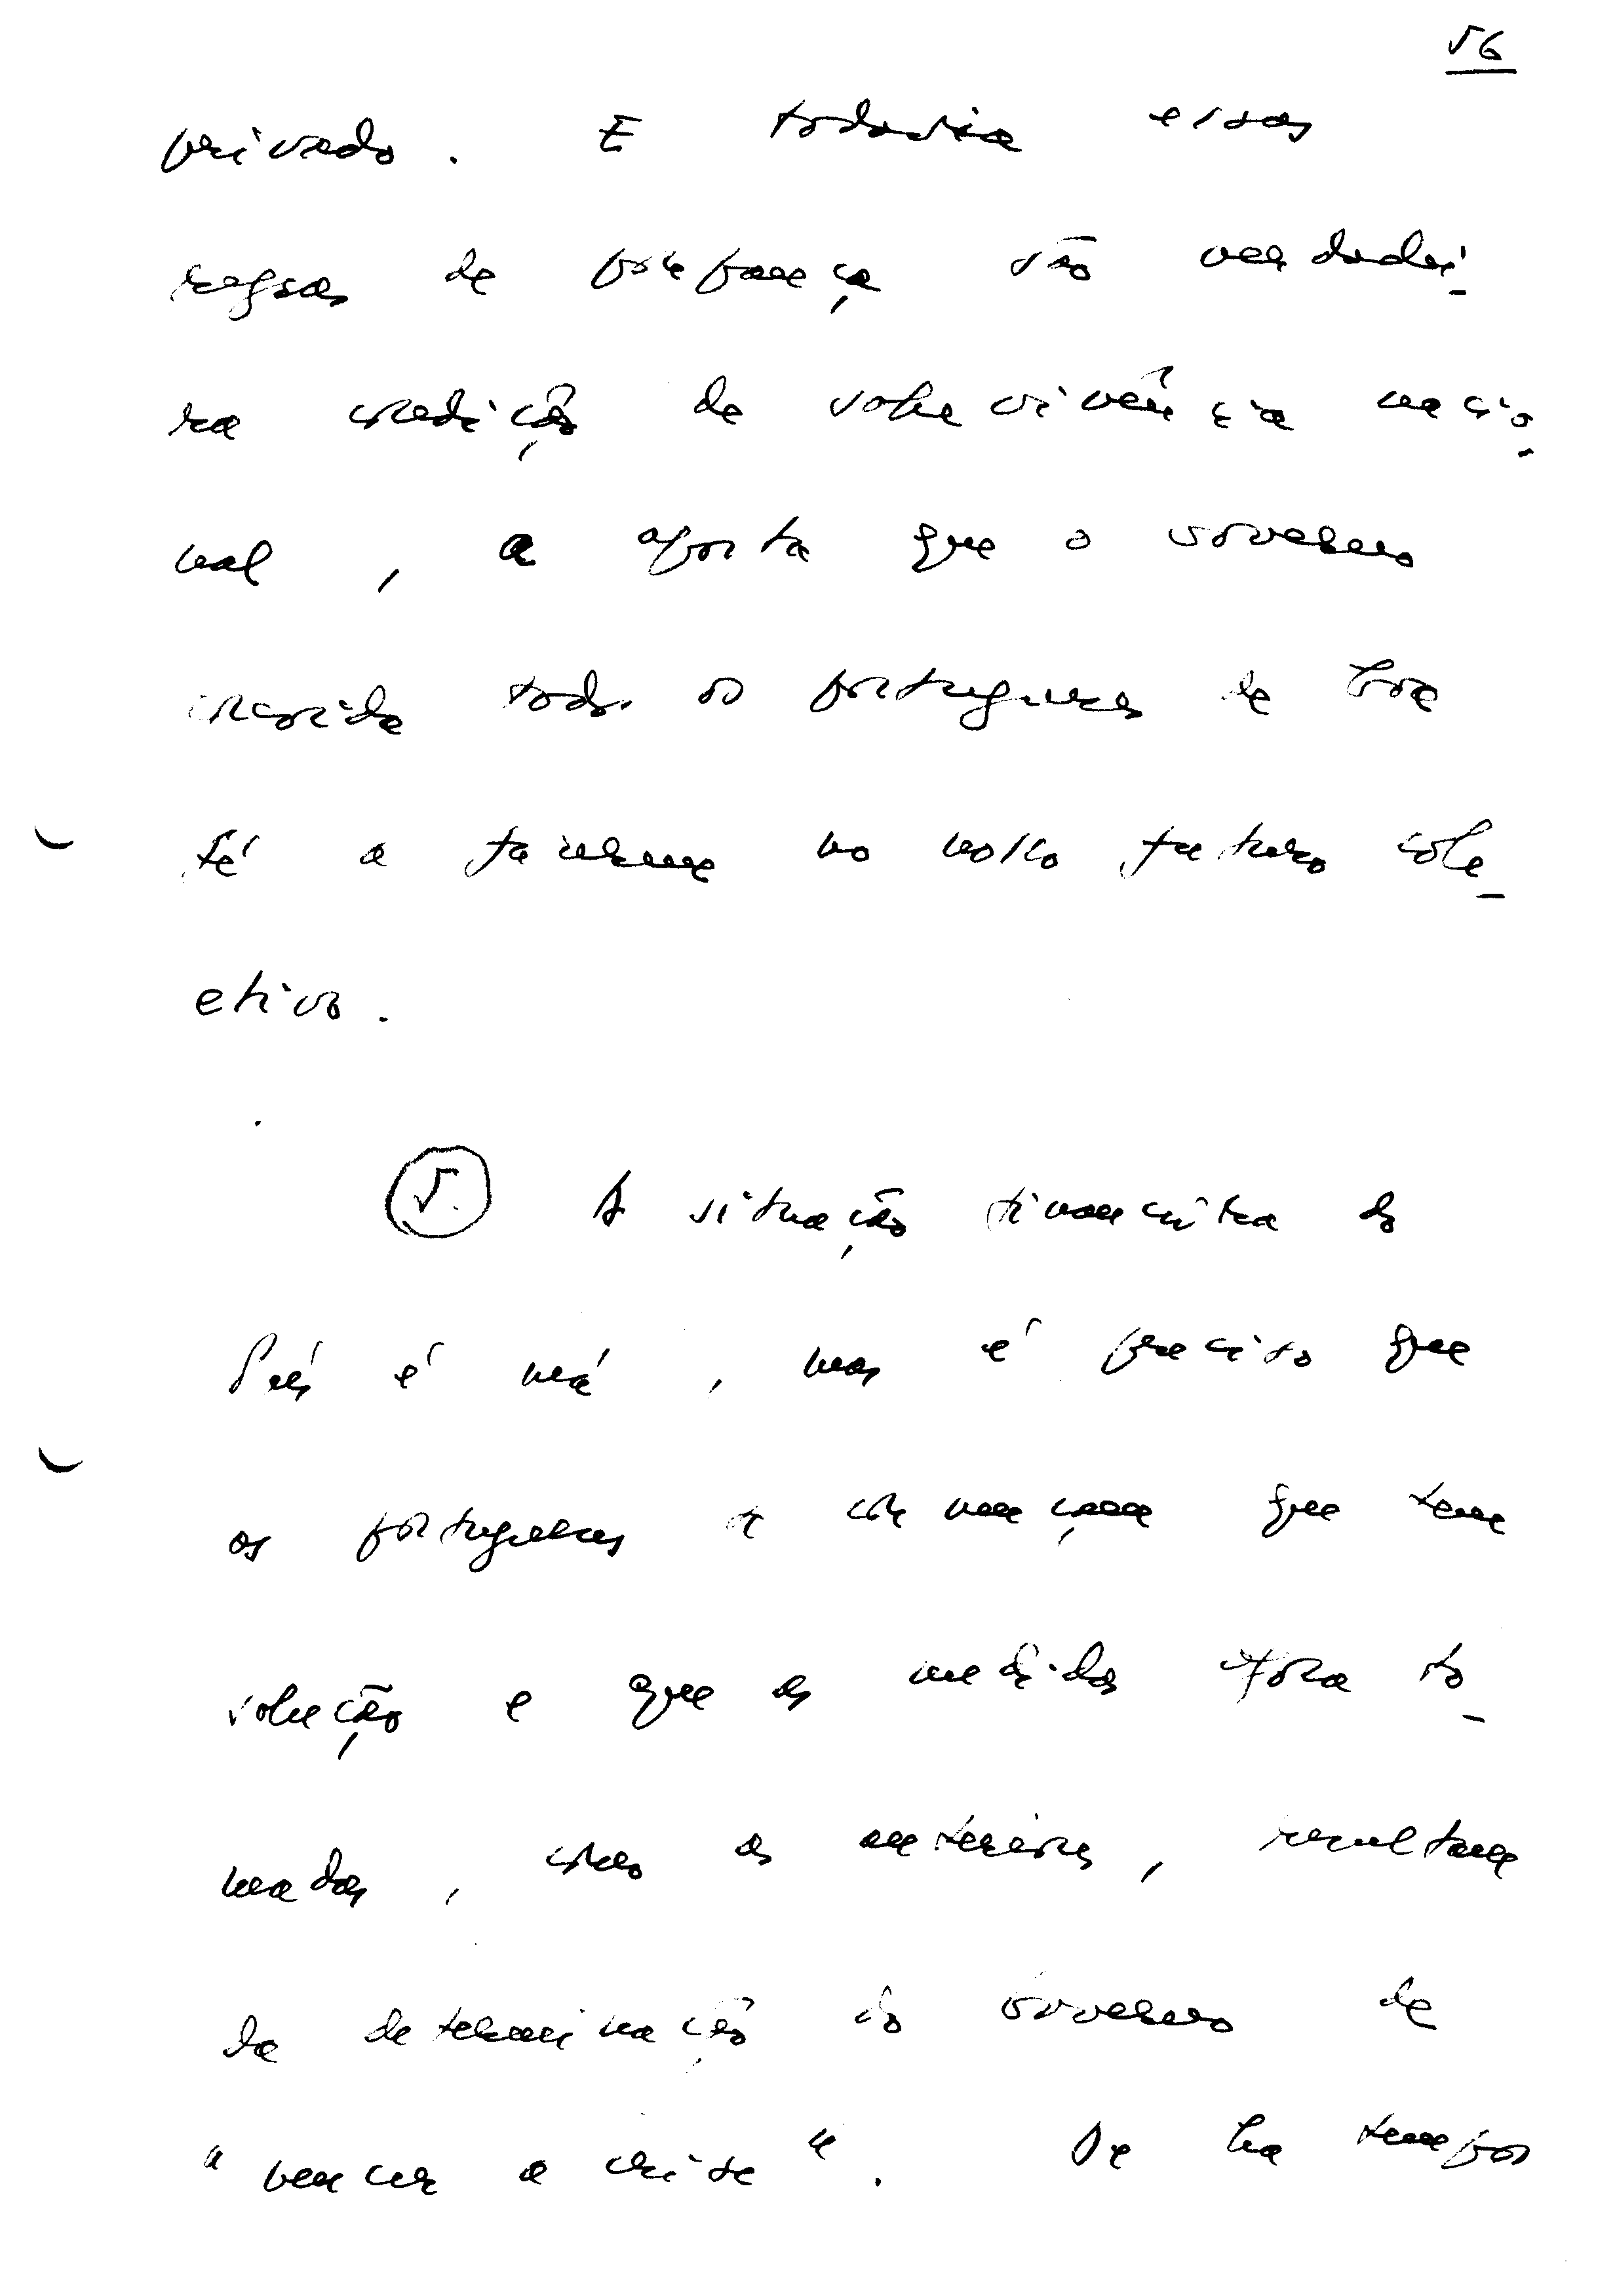 56
privado. E todavia essas
regras de poupança são verdadei-
ra condição de sobrevivência nacio-
nal, a aposta que o Governo
convida todos os portugueses de boa
fé a fazerem no nosso futuro cole-
etivo.
5. A situação financeira do
País é má, mas é preciso que
os portugueses se convençam que tem
solução e que as medidas agora to-
madas, como as anteriores, resultam
da determinação do Governo de
"vencer a crise". Se há tempos